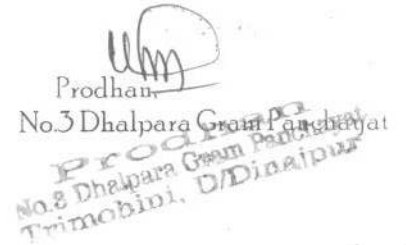 Prodhan,
No.3 Dhalpara Gram Panchayat
Prodhan
No.3 Dhalpara Gram Panchayat
Trimohini, D/Dinajpur